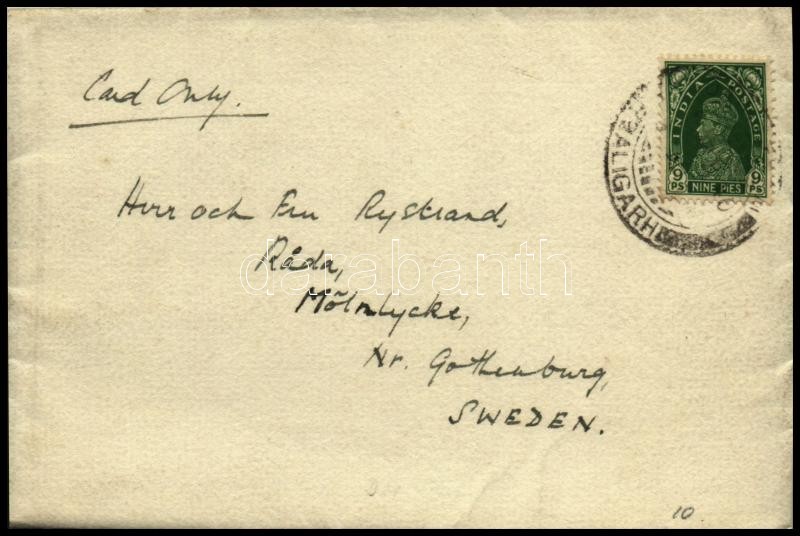 Card Only.
INDIA POSTAGE
9 PS NINE PIES 9 PS
ALIGARH
Herr och Fru Rystrand,
Råda,
darabanth
Mölnlycke,
Nr. Gothenburg,
SWEDEN.
10.